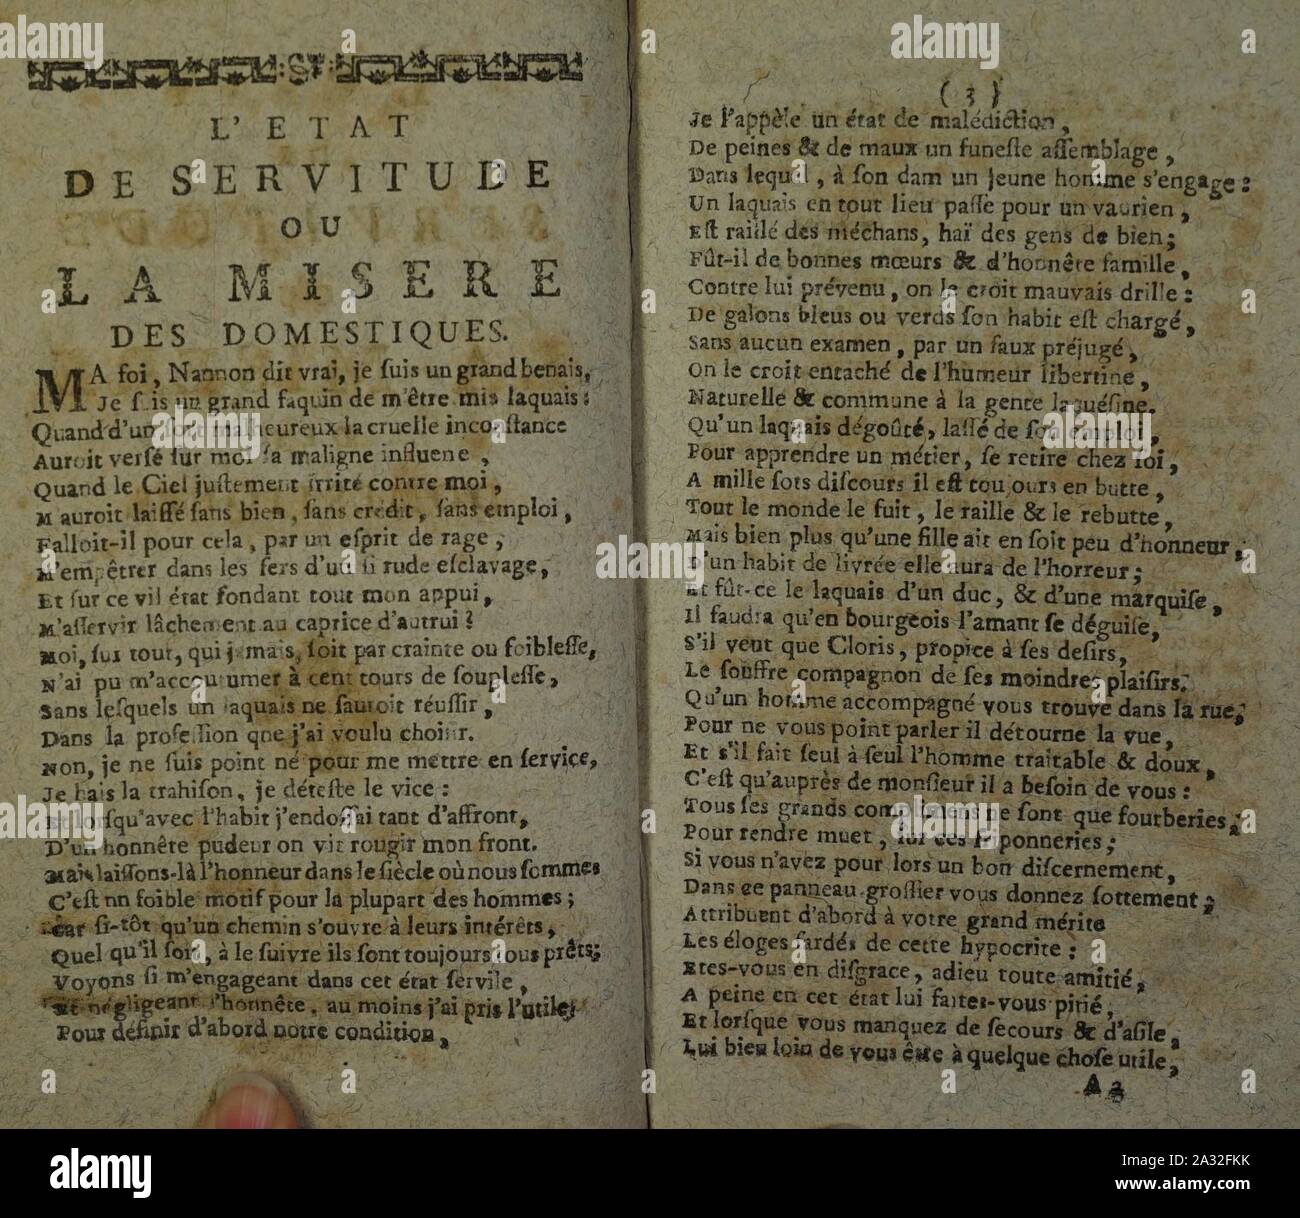 L'ETAT
DE SERVITUDE
OU
LA MISERE
DES DOMESTIQUES.
MA foi, Nannon dit vrai, je ſuis un grand benais,
Je ſuis un grand faquin de m'être mis laquais:
Quand d'un ſort malheureux la cruelle inconſtance
Auroit verſé ſur moi ſa maligne influene,
Quand le Ciel juſtement irrité contre moi,
M auroit laiſſé ſans bien, ſans crédit, ſans emploi,
Falloit-il pour cela, par un eſprit de rage,
M'empêtrer dans les fers d'un ſi rude eſclavage,
Et ſur ce vil état fondant tout mon appui,
M'aſſervir lâchement au caprice d'autrui?
Moi, ſur tout, qui jamais, ſoit par crainte ou foibleſſe,
N'ai pu m'accoutumer à cent tours de ſoupleſſe,
Sans leſquels un laquais ne ſauroit réuſſir,
Dans la profeſſion qne j'ai voulu choiſir.
Non, je ne ſuis point né pour me mettre en ſervice,
Je hais la trahiſon, je déteſte le vice:
Et lorſqu'avec l'habit j'endoſſai tant d'affront,
D'un honnête pudeur on vit rougir mon front.
Mais laiſſons-là l'honneur dans le ſiècle où nous ſommes
C'eſt nn foible motif pour la plupart des hommes;
Car ſi-tôt qu'un chemin s'ouvre à leurs intérêts,
Quel qu'il ſoit, à le ſuivre ils ſont toujours tous prêts;
Voyons ſi m'engageant dans cet état ſervile,
Et négligeant l'honnête, au moins j'ai pris l'utile;
Pour définir d'abord notre condition,
(3)
Je l'appèle un état de malédiction,
De peines & de maux un funeſte aſſemblage,
Dans lequel, à ſon dam un jeune homme s'engage:
Un laquais en tout lieu paſſe pour un vaurien,
Eſt raillé des méchans, haï des gens de bien;
Fût-il de bonnes mœurs & d'honnête famille,
Contre lui prévenu, on le croit mauvais drille:
De galons bleus ou verds ſon habit eſt chargé,
Sans aucun examen, par un faux préjugé,
On le croit entaché de l'humeur libertine,
Naturelle & commune à la gente laquéſine.
Qu'un laquais dégoûté, laſſé de ſon emploi,
Pour apprendre un métier, ſe retire chez ſoi,
A mille ſots diſcours il eſt toujours en butte,
Tout le monde le fuit, le raille & le rebutte,
Mais bien plus qu'une fille ait en ſoit peu d'honneur,
D'un habit de livrée elle aura de l'horreur;
Et fût-ce le laquais d'un duc, & d'une marquiſe,
Il faudra qu'en bourgeois l'amant ſe déguiſe,
S'il veut que Cloris, propice à ſes deſirs,
Le ſouffre compagnon de ſes moindres plaiſirs.
Qu'un homme accompagné vous trouve dans la rue,
Pour ne vous point parler il détourne la vue,
Et s'il fait ſeul à ſeul l'homme traitable & doux,
C'eſt qu'auprès de monſieur il a beſoin de vous:
Tous ſes grands complimens ne ſont que fourberies,
Pour rendre muet, ſur ces friponneries;
Si vous n'avez pour lors un bon diſcernement,
Dans ce panneau groſſier vous donnez ſottement;
Attribuent d'abord à votre grand mérite
Les éloges fardés de cette hypocrite:
Etes-vous en diſgrace, adieu toute amitié,
A peine en cet état lui faites-vous pitié,
Et lorſque vous manquez de ſecours & d'aſile,
Lui bien loin de vous être à quelque choſe utile,
A 2
alamy
Image ID: A32FKK
www.alamy.com